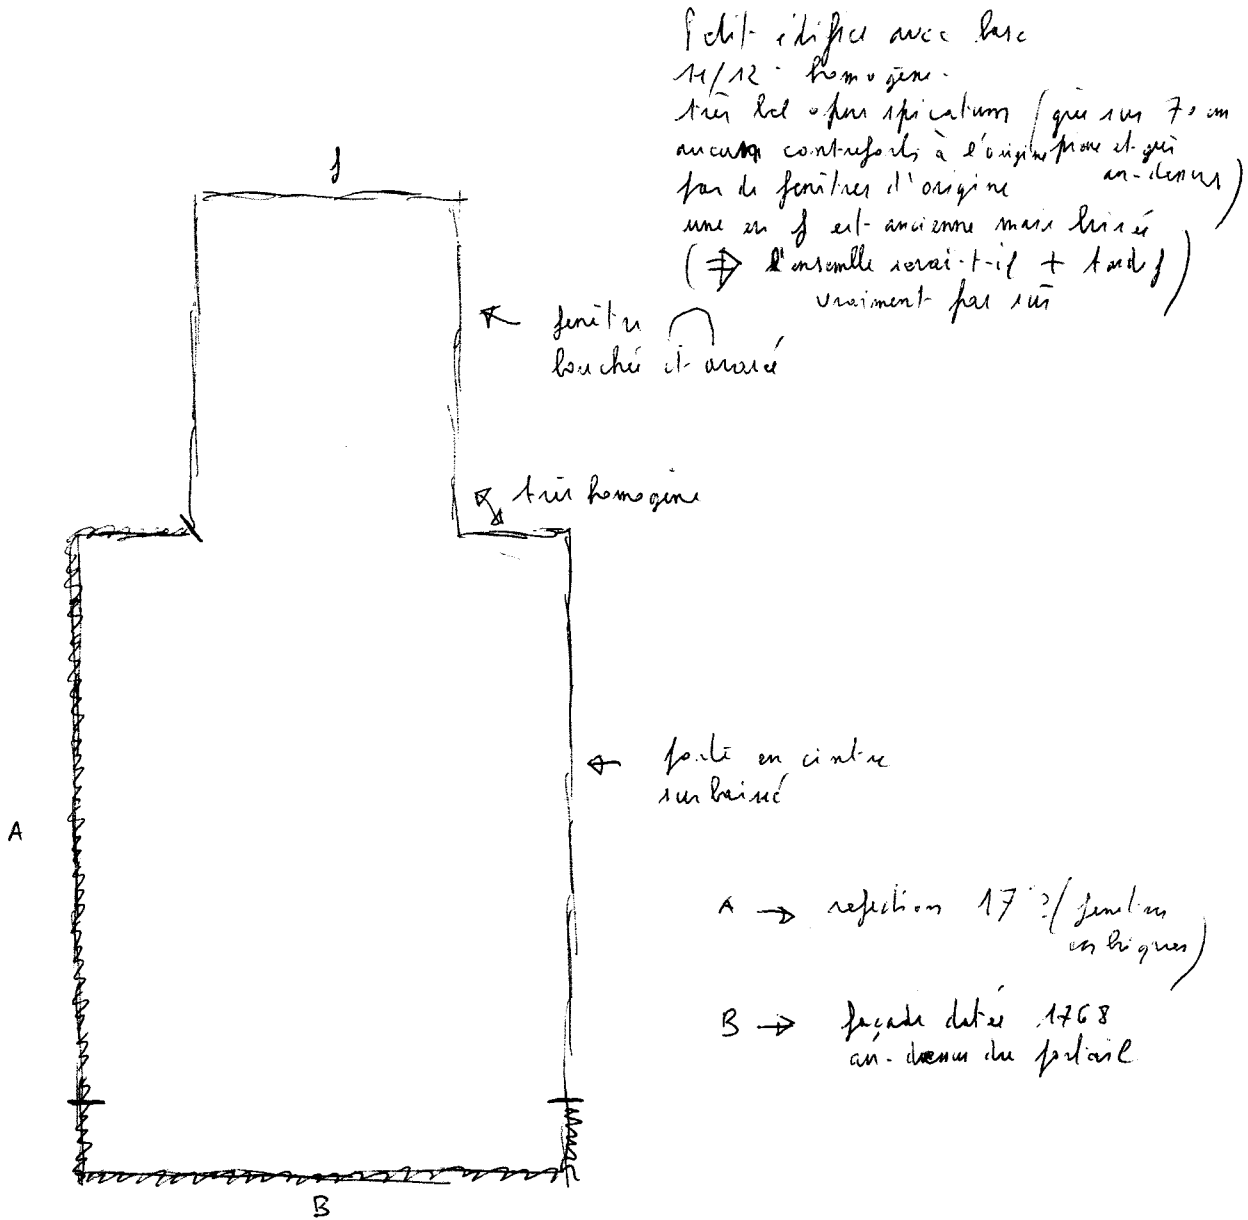 Petit édifice avec base
11/12° homogène.
très bel opus spicatum (grès sur 70 cm
aucun contreforts à l'origine et grès
au-dessus)
pas de fenêtres d'origine
une en f est ancienne mais brisée
(⇒ l'ensemble serait-il + tardif)
vraiment pas sûr
f
← fenêtre
bouchée et arasé
très homogène
← porte en cintre
surbaissé
A
A → refection 17°? (fenêtres
en briques)
B → façade datée 1768
au-dessus du portail
B